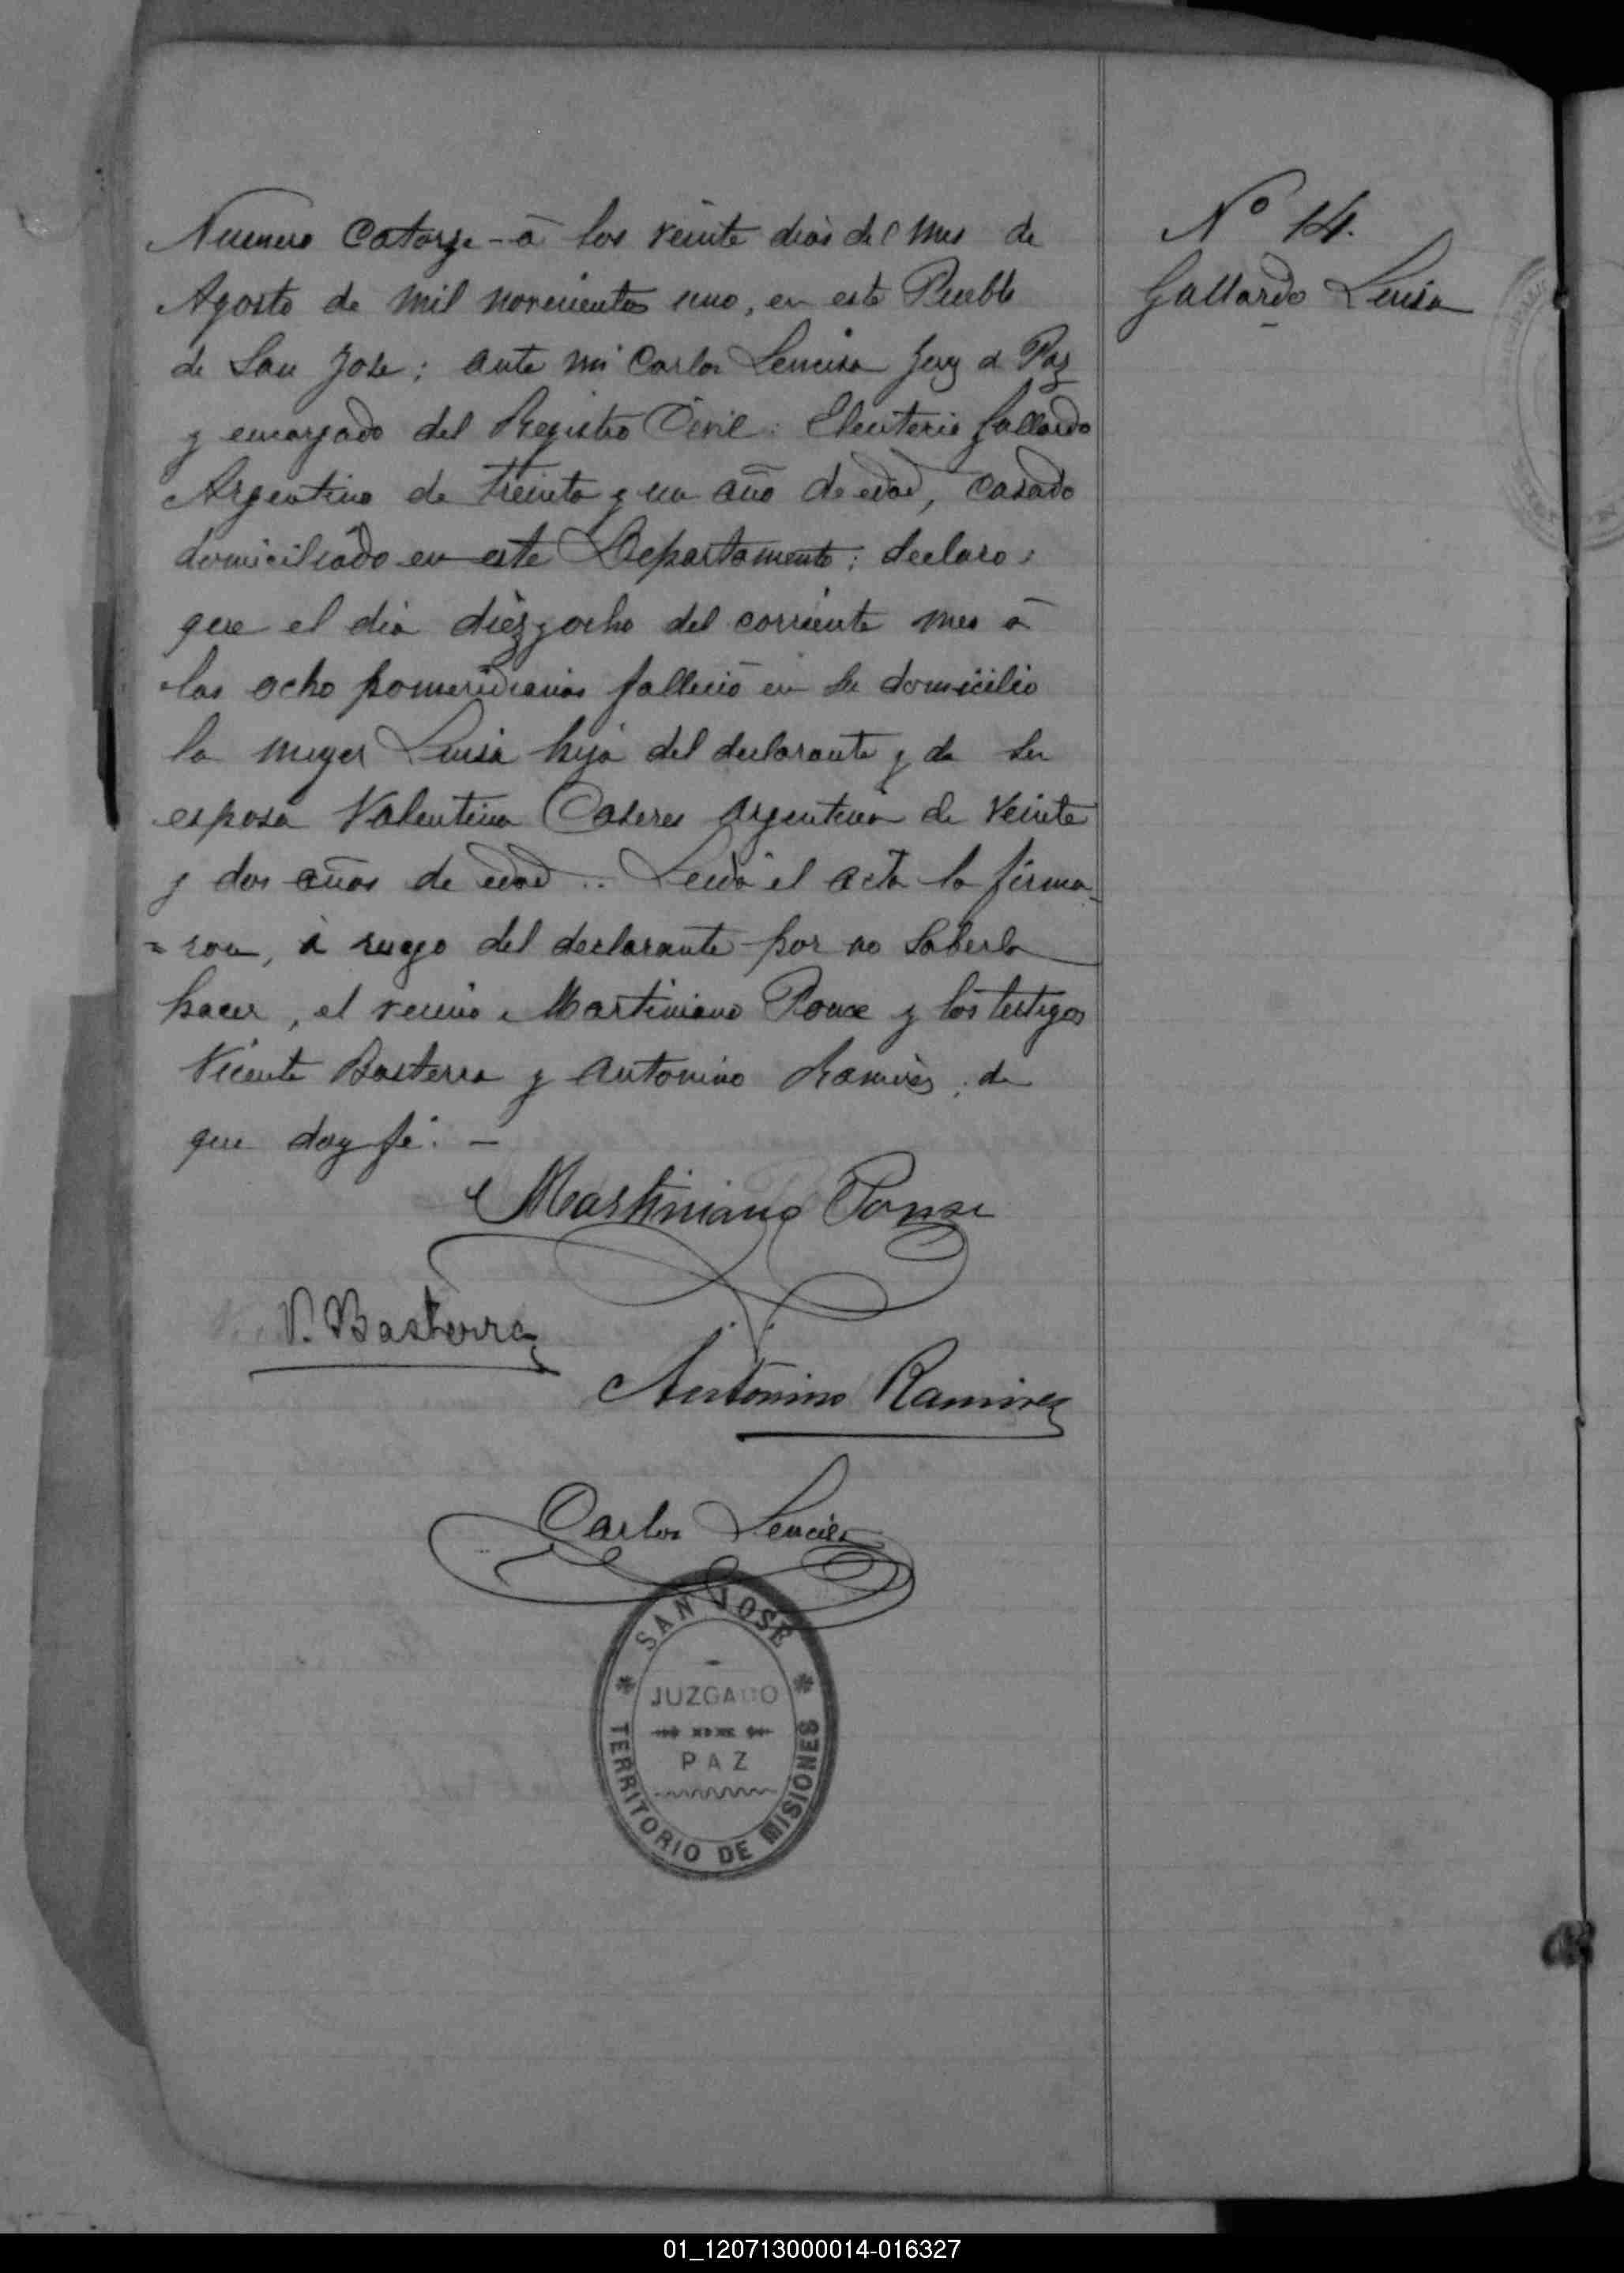 Numero Catorze - á los veinte dias del mes de
Agosto de mil novecientos uno, en este Pueblo
de San Jose; ante mi Carlos Lencisa Juez d Paz
y encargado del Registro Civil: Eleuterio Gallardo
Argentino de treinta y un año de edad, casado
domiciliado en este Departamento; declaro:
que el dia diez y ocho del corriente mes á
las ocho pomeridianas falleció en su domicilio
la muger Luisa hija del declarante y de su
esposa Valentina Caseres argentina de veinte
y dos años de edad .. Leida el acta la firma-
=ron, á ruego del declarante por no saberla
hacer, el vecino Martiniano Ponce y los testigos
Vicente Basterra y Antonino Ramirez; de
que doy fé. -
Martiniano Ponse
V. Basterra
Antonino Ramirez
Carlos Lencisa
SAN JOSE
JUZGADO
PAZ
TERRITORIO DE MISIONES
Nº 14.
Gallardo Luisa
01_120713000014-016327